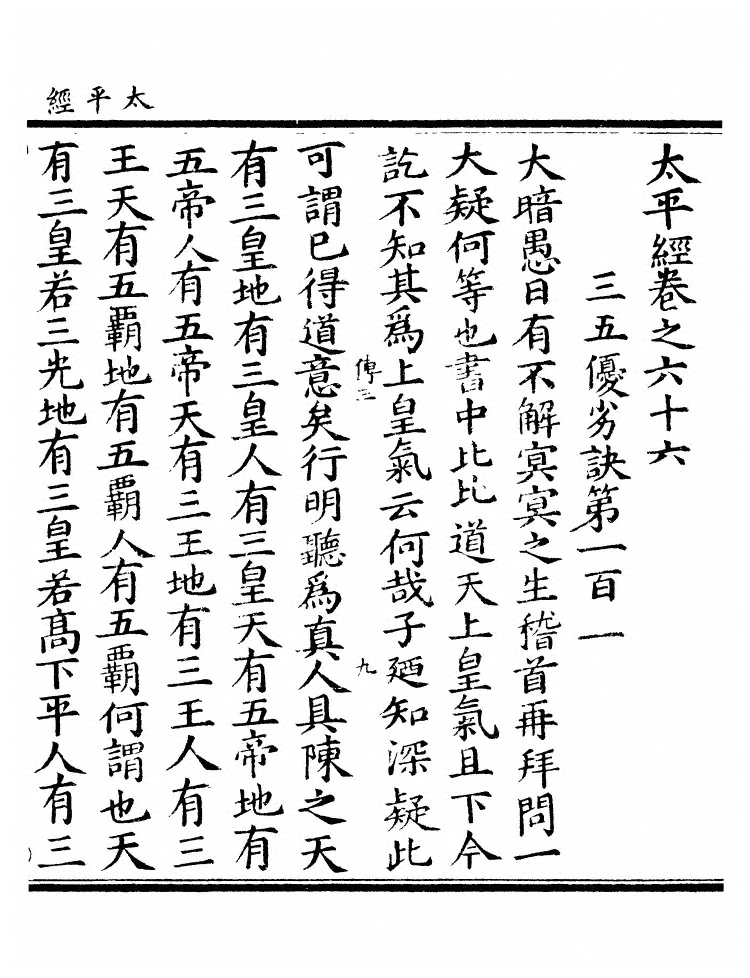 太平經
太平經卷之六十六
三五優劣訣第一百一
大暗愚日有不解冥冥之生稽首再拜問一
大疑何等也書中比比道天上皇氣且下今
訖不知其爲上皇氣云何哉子廼知深疑此
傅三
九
可謂已得道意矣行明聽爲真人具陳之天
有三皇地有三皇人有三皇天有五帝地有
五帝人有五帝天有三王地有三王人有三
王天有五覇地有五覇人有五覇何謂也天
有三皇若三光地有三皇若髙下平人有三